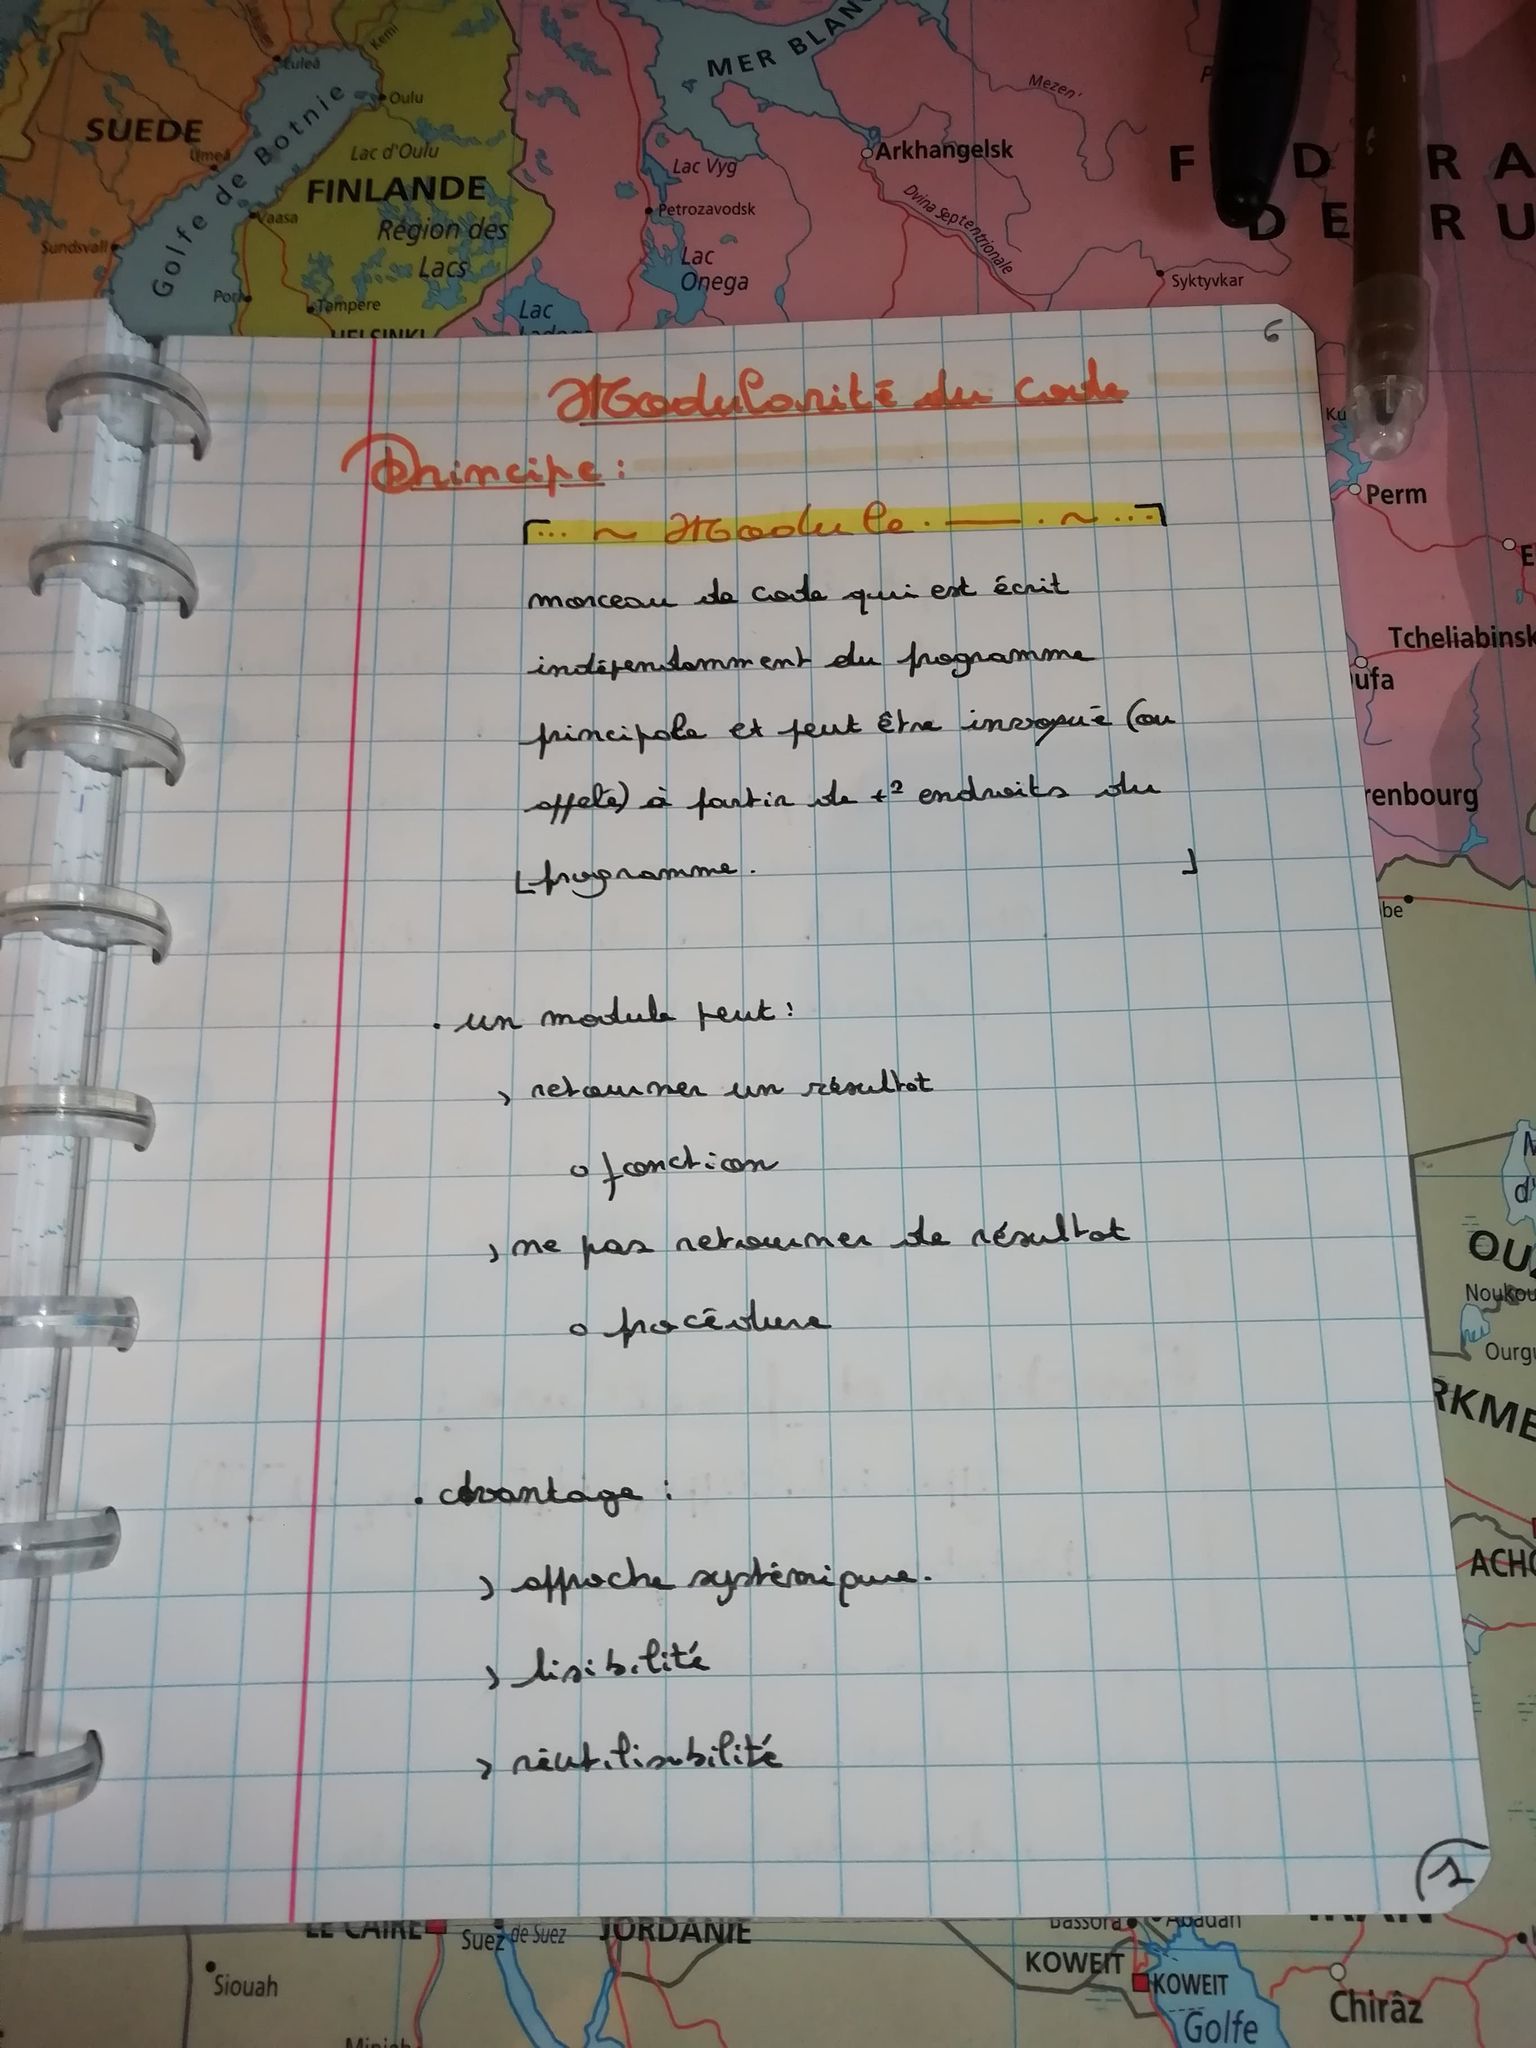 MER BLAN
Kemi
Luleå
Oulu
SUEDE
Umeå
Golfe de Botnie
Lac d'Oulu
FINLANDE
Vaasa
Région des
Lacs
Sundsvall
Pori
Tampere
HELSINKI
Lac
Mezen'
Arkhangelsk
Lac Vyg
Petrozavodsk
Dvina Septentrionale
Lac
Onega
Syktyvkar
F D RA
DE RU
6
Modularité du code
Principe :
Module
morceau de code qui est écrit
indépendamment du programme
principale et peut être invoqué (ou
appelé) à partir de +² endroits du
programme.
. un module peut :
> retourner un résultat
o fonction
> ne pas retourner de résultat
o procédure
. avantage :
> approche systémique.
> lisibilité
> réutilisabilité
1
Ku
Perm
Tcheliabinsk
ufa
renbourg
be
OU
Noukou
Ourg
RKME
ACHG
LE CAIRE
Suez
de Suez
JORDANIE
Siouah
Bassora
Abadan
IRAN
KOWEIT
KOWEIT
Golfe
Chirâz